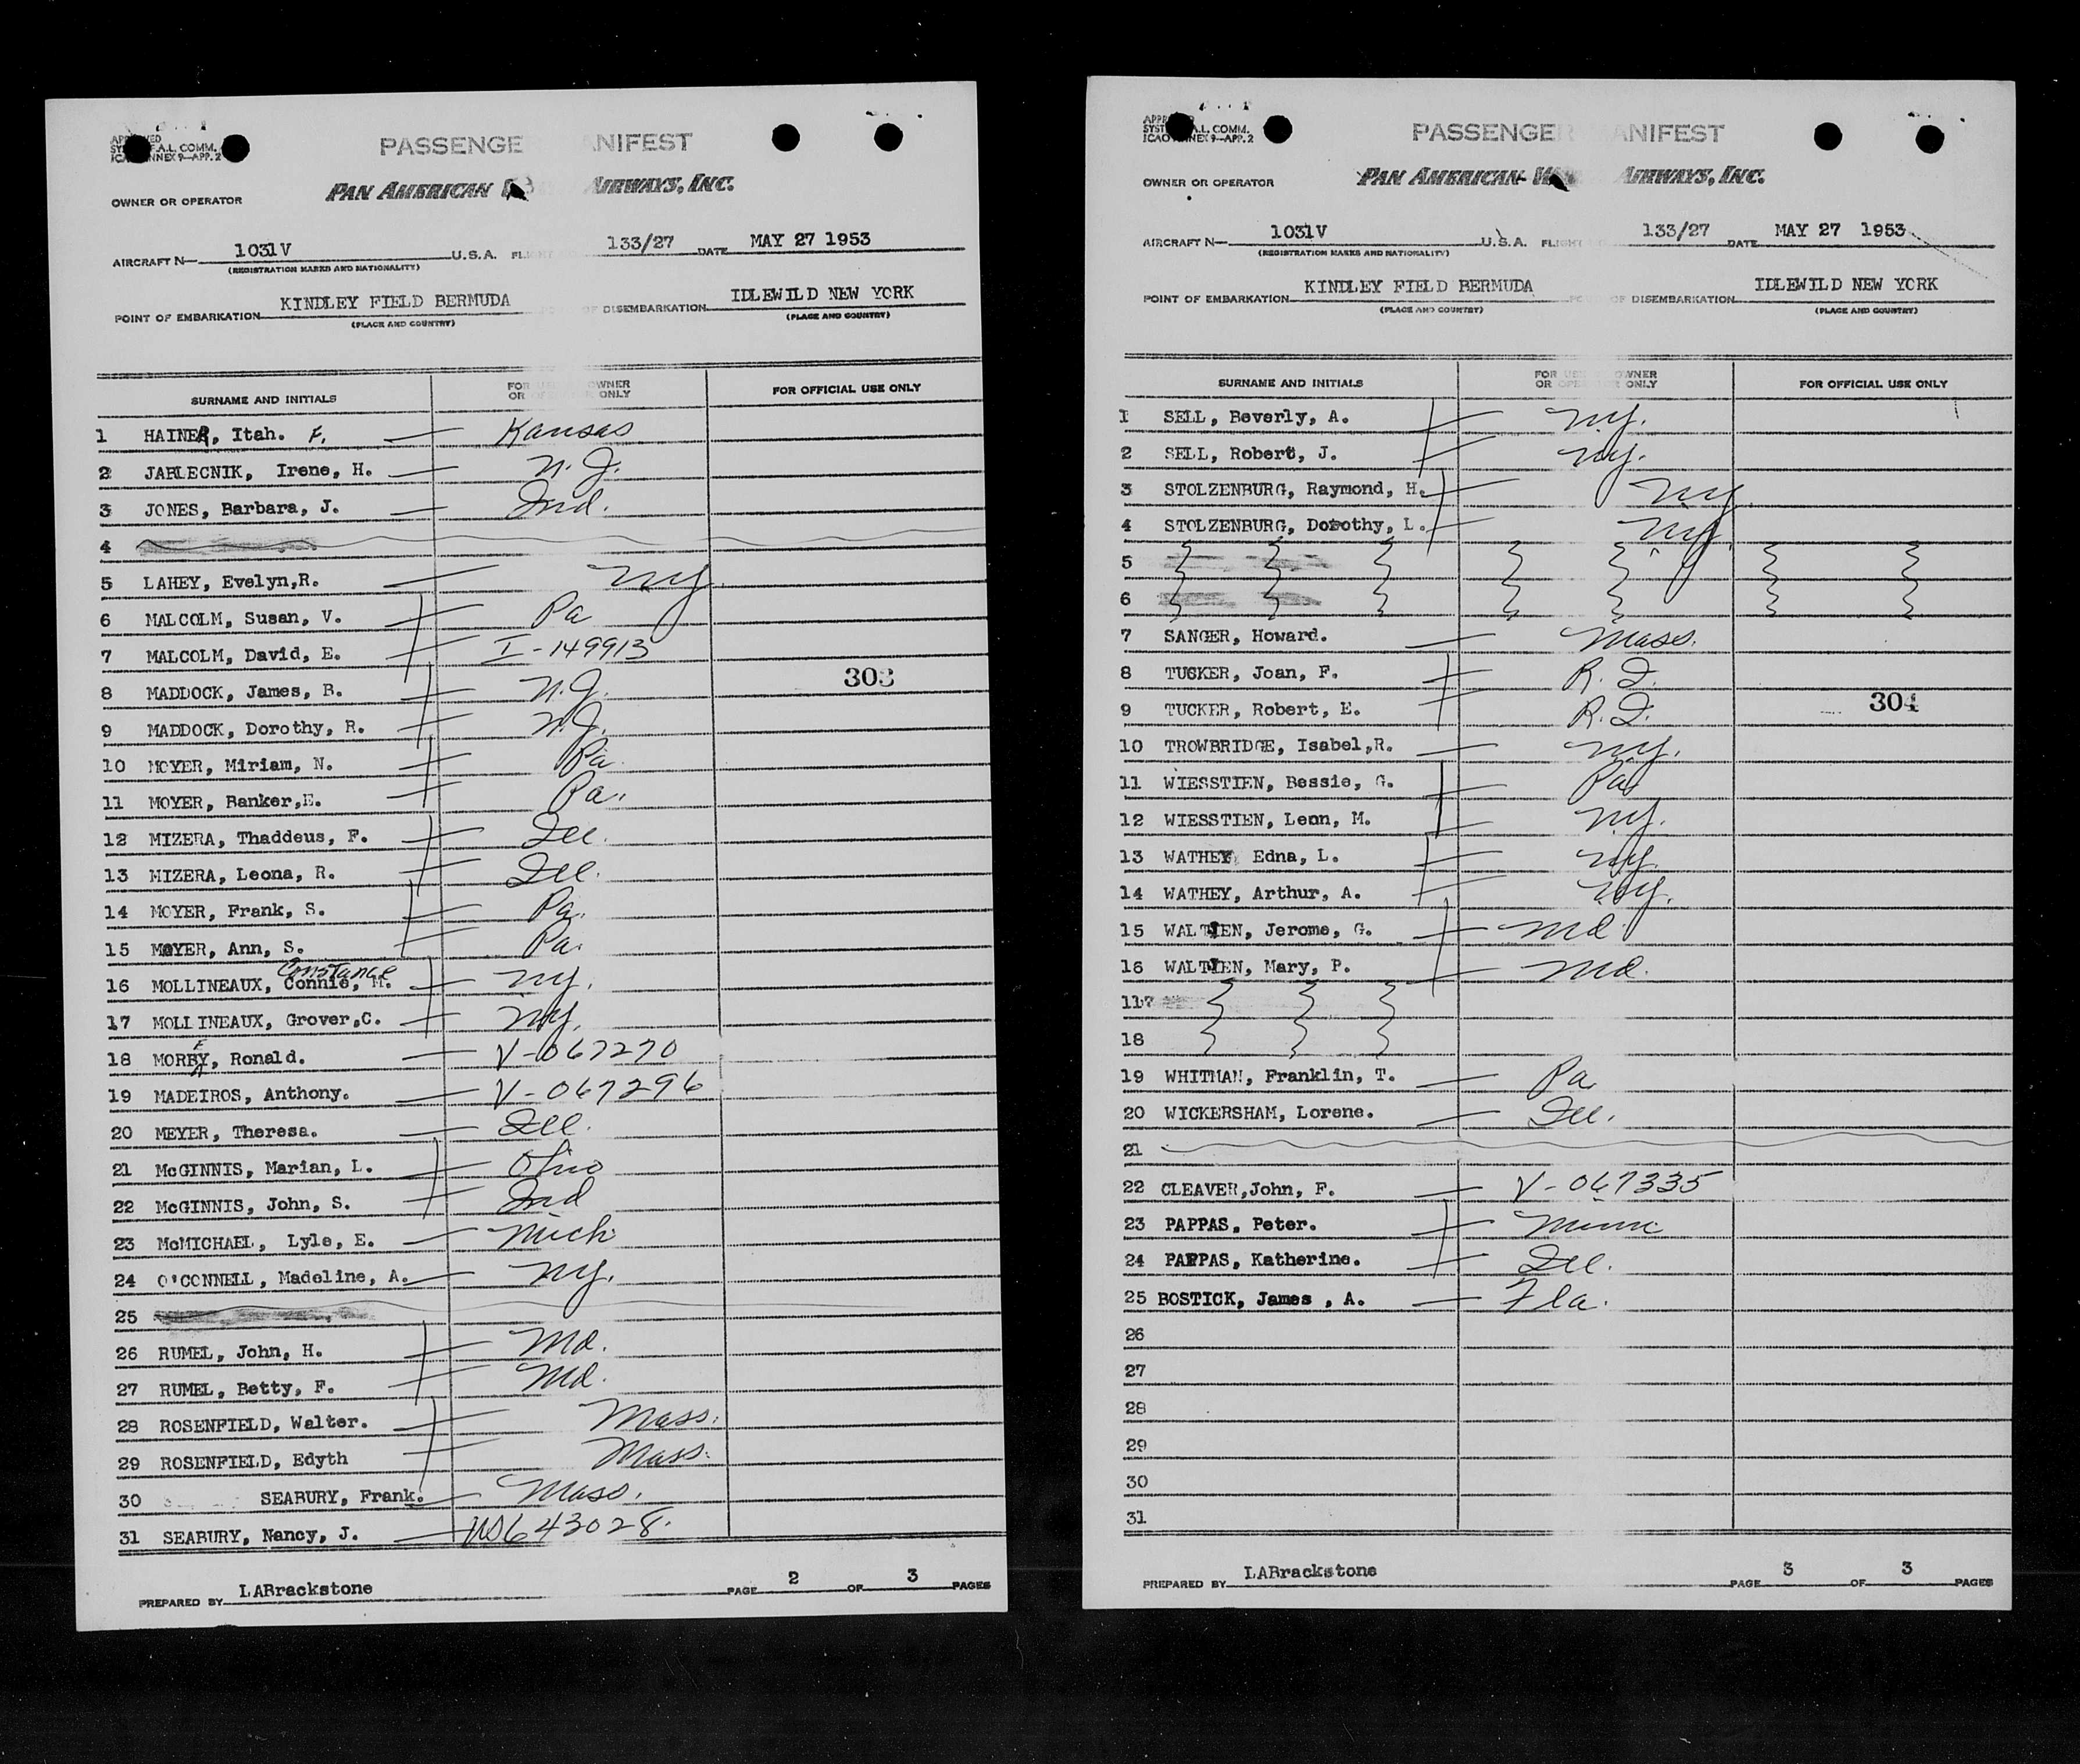 APPROVED
SYST F.A.L. COMM.
ICAO ANNEX 9—APP. 2
PASSENGE ANIFEST
OWNER OR OPERATOR
PAN AMERICAN AIRWAYS, INC.
AIRCRAFT N— 1031V U.S.A. FLIGHT 133/27 DATE MAY 27 1953
(REGISTRATION MARKS AND NATIONALITY)
POINT OF EMBARKATION KINDLEY FIELD BERMUDA OF DISEMBARKATION IDLEWILD NEW YORK
(PLACE AND COUNTRY) (PLACE AND COUNTRY)
SURNAME AND INITIALS FOR USE OWNER OR ONLY FOR OFFICIAL USE ONLY
1 HAINER, Itah. F. — Kansas
2 JABLECNIK, Irene, H. — N.J.
3 JONES, Barbara, J. — Ind.
4
5 LAHEY, Evelyn,R. — NY
6 MALCOLM, Susan, V. — Pa
7 MALCOLM, David, E. — I-149913
8 MADDOCK, James, B. — N.J. 303
9 MADDOCK, Dorothy, R. — N.J.
10 MOYER, Miriam, N. — Pa.
11 MOYER, Banker,E. — Pa.
12 MIZERA, Thaddeus, F. — Ill.
13 MIZERA, Leona, R. — Ill.
14 MOYER, Frank, S. — Pa.
15 MOYER, Ann, S. — Pa.
Constance
16 MOLLINEAUX, Connie, M. — NY.
17 MOLLINEAUX, Grover,C. — NY.
18 MORBY, Ronald. — V-067270
19 MADEIROS, Anthony. — V-067296
20 MEYER, Theresa. — Ill.
21 McGINNIS, Marian, L. — Ohio
22 McGINNIS, John, S. — Ind
23 McMICHAEL, Lyle, E. — Mich
24 O'CONNELL, Madeline, A. — NY.
25
26 RUMEL, John, H. — Md.
27 RUMEL, Betty, F. — Md.
28 ROSENFIELD, Walter. — Mass.
29 ROSENFIELD, Edyth — Mass.
30 SEABURY, Frank. — Mass.
31 SEABURY, Nancy, J. — US643028.
PREPARED BY LABrackstone PAGE 2 OF 3 PAGES
APPR
SYST A.L. COMM.
ICAO ANNEX 9—APP. 2
PASSENGE ANIFEST
OWNER OR OPERATOR
PAN AMERICAN AIRWAYS, INC.
AIRCRAFT N— 1031V U.S.A. FLIGHT 133/27 DATE MAY 27 1953
(REGISTRATION MARKS AND NATIONALITY)
POINT OF EMBARKATION KINDLEY FIELD BERMUDA OF DISEMBARKATION IDLEWILD NEW YORK
(PLACE AND COUNTRY) (PLACE AND COUNTRY)
SURNAME AND INITIALS FOR USE OWNER OR ONLY FOR OFFICIAL USE ONLY
1 SELL, Beverly, A. — NY.
2 SELL, Robert, J. — NY.
3 STOLZENBURG, Raymond, H. — NY
4 STOLZENBURG, Dorothy, L. — NY.
5
6
7 SANGER, Howard. — Mass.
8 TUCKER, Joan, F. — R.I.
9 TUCKER, Robert, E. — R.I. 304
10 TROWBRIDGE, Isabel,R. — NY.
11 WIESSTIEN, Bessie, G. — Pa
12 WIESSTIEN, Leon, M. — NY.
13 WATHEY Edna, L. — NY.
14 WATHEY, Arthur, A. — NY.
15 WALTIEN, Jerome, G. — Md
16 WALTIEN, Mary, P. — Md.
117
18
19 WHITMAN, Franklin, T. — Pa
20 WICKERSHAM, Lorene. — Ill.
21
22 CLEAVER,John, F. — V-067335
23 PAPPAS, Peter. — Minn
24 PAPPAS, Katherine. — Ill.
25 BOSTICK, James , A. — Fla.
26
27
28
29
30
31
PREPARED BY LABrackstone PAGE 3 OF 3 PAGES